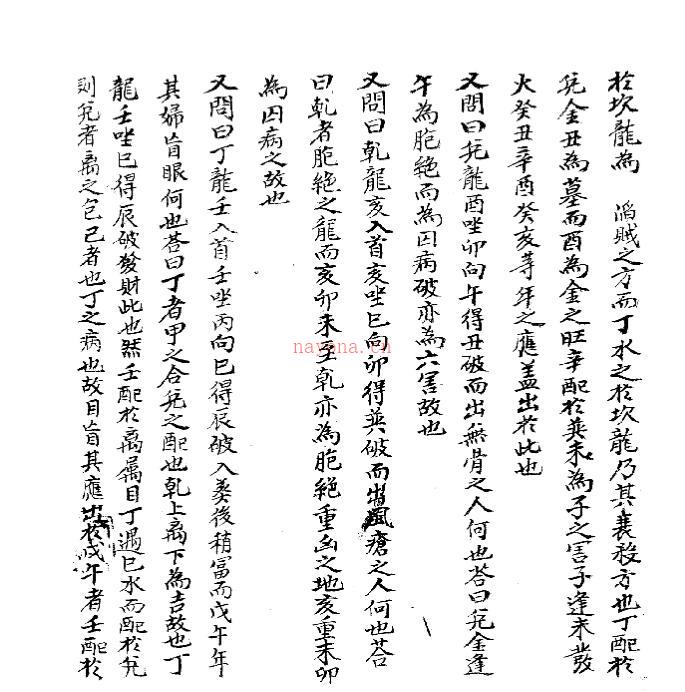 於坎龍為 滔賊之方而丁水之於坎龍乃其衰殺方也丁配於
兌金丑為墓而酉為金之旺辛配於巽未為子之害子逢未發
火癸丑辛酉癸亥等年之應盖出於此也
又問曰兌龍酉坐卯向午得丑破而出無骨之人何也荅曰兌金逢
午為胞絶而為囚病破亦為六害故也
又問曰乹龍亥入首亥坐巳向卯得巽破而出風瘡之人何也荅
曰乹者胞絶之龍而亥卯未至乹亦為胞絶重凶之地亥重未卯
為囚病之故也
又問曰丁龍壬入首壬坐丙向巳得辰破入葬後稍富而戊午年
其婦盲眼何也荅曰丁者甲之合兌之配也乹上离下為吉故也丁
龍壬坐巳得辰破發財此也然壬配於离屬目丁遇巳水而配於兌
則兌者离之包己者也丁之病也故目盲其應出於戊午者壬配於
nayona.cn